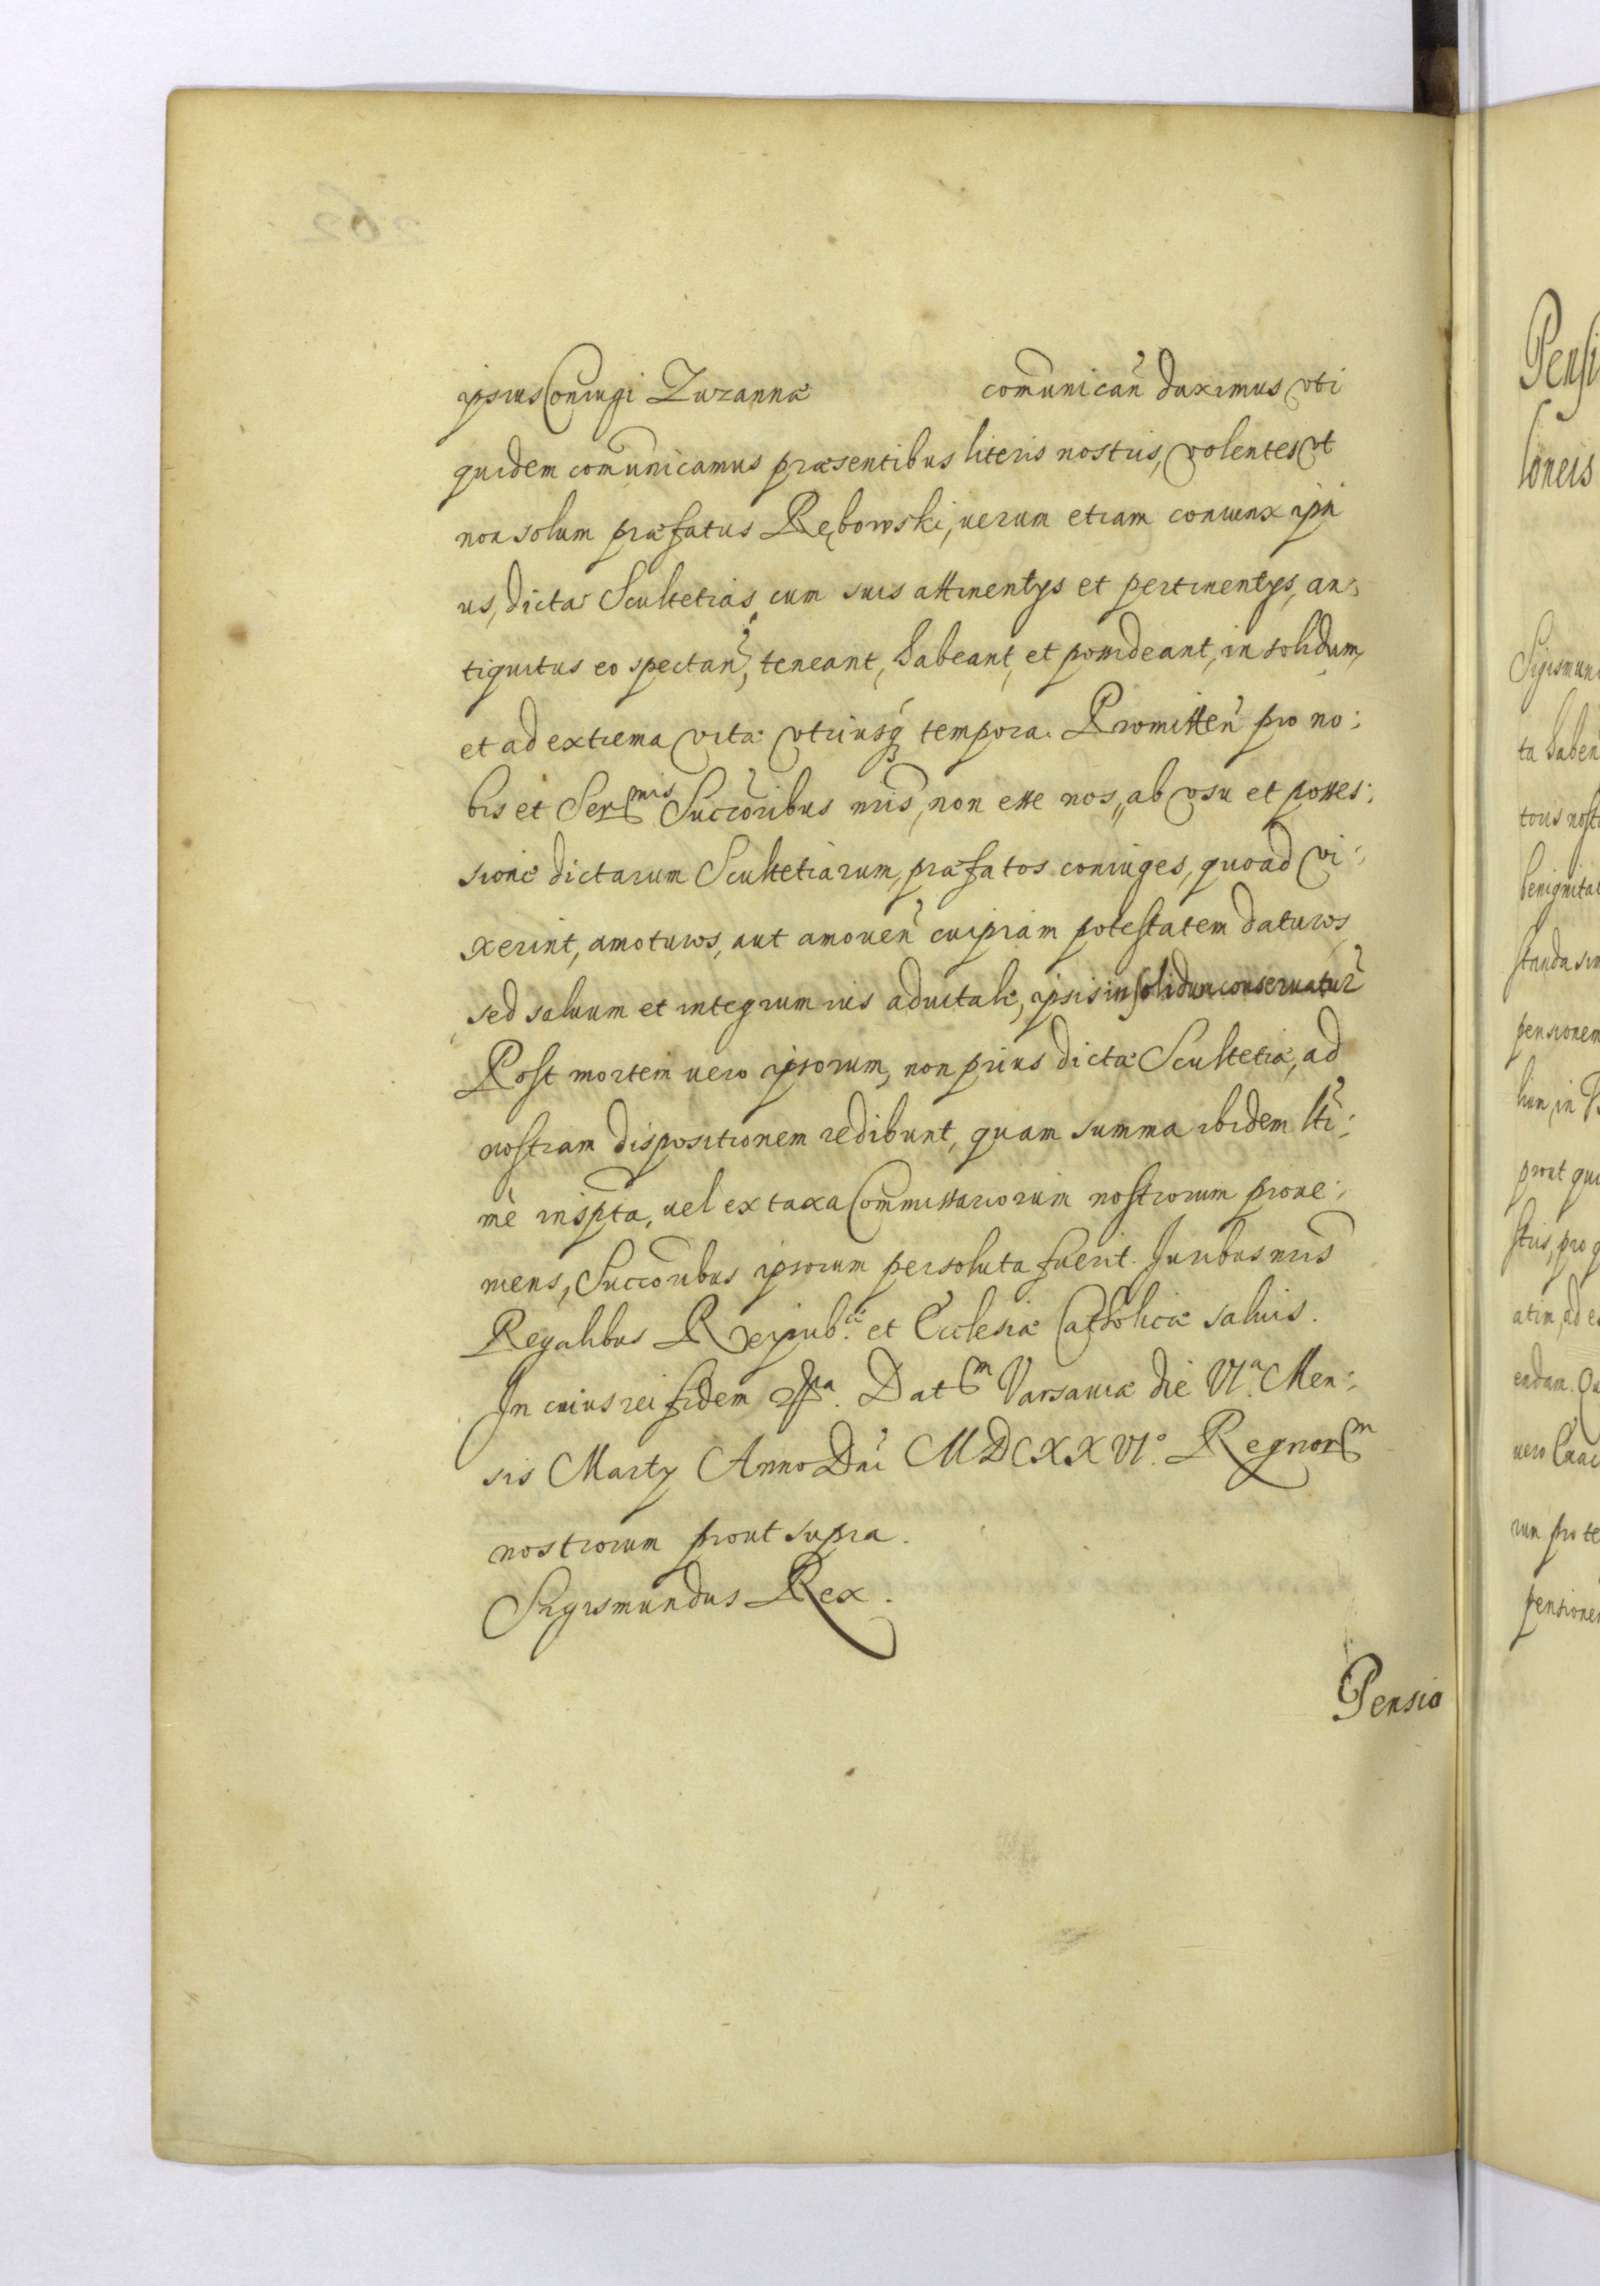 ipsius Coniugi Zuzannæ comunican̄ duximus vti
quidem comunicamus præsentibus literis nostris, volentes vt
non solum præfatus Rębowski, uerum etiam coniunx ipsi
us, dictas Scultetias cum suis attinentys et pertinentys, an:
tiquitus eo spectan̄, teneant, habeant, et possideant, in solidum,
et ad extrema vitæ vtriusq tempora. Promitten̄ pro no:
bis et Sermis Succoribus nris, non esse nos, ab vsu et posses:
sione dictarum Scultetiarum, præfatos coniuges, quoad vi:
xerint, amoturos, aut amouen̄ cuipiam potestatem daturos,
sed saluum et integrum ius aduitale, ipsis in solidum conseruatur
Post mortem uero ipsorum, non prius dictæ Scultetiæ, ad
nostram dispositionem redibunt, quam summa ibidem lti:
mè inspta, uel ex taxa Commissariorum nostrorum proue:
niens, Succoribus ipsorum persoluta fuerit. Juribus nris
Regalibus Reipub.cæ et Ecclesiæ Catholicæ saluis.
In cuius rei fidem Dat m Varsauiæ die VI.a Men:
sis Marty Anno Dni MDCXXVI.o Regnor m
nostrorum prout supra.
Sigismundus Rex.
Pensio
262
Pensi
loneis
Sigismun
ta haben
toris nost
benignitat
standa
pensionem
lium, in
prout qui
stris, pro q
atim, ad e
endam.
uero
rum pro te
pensione